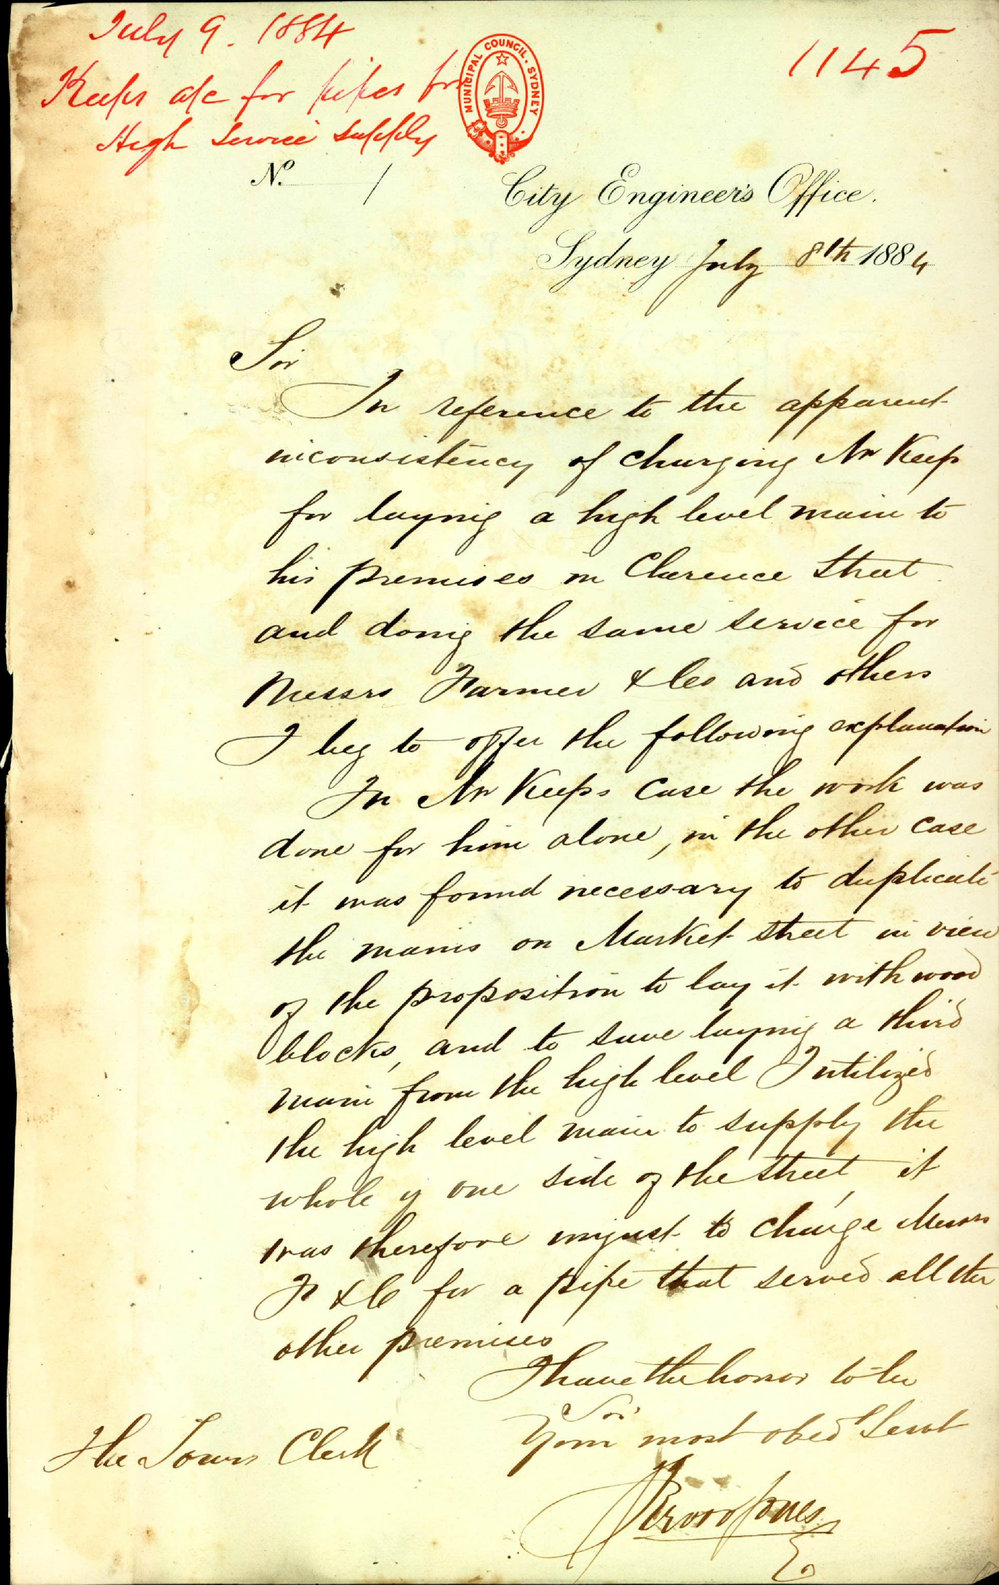 July 9. 1884
1145
Keeps a/c for pipes for
High Service supply
MUNICIPAL COUNCIL. SYDNEY
No. 1
City Engineer's Office.
Sydney July 8th 1884
Sir
In reference to the apparent
inconsistency of charging Mr Keep
for laying a high level main to
his premises in Clarence Street
and doing the same service for
Messrs Farmer & Co and others
I beg to offer the following explanation
In Mr Keeps case the work was
done for him alone, in the other case
it was found necessary to duplicate
the mains on Market Street in view
of the proposition to lay it with wood
blocks, and to save laying a third
main from the high level I utilized
the high level main to supply the
whole of one side of the Street, it
was therefore unjust to charge Messrs
F & C for a pipe that served all the
other premises
I have the honor to be
Sir
Your most obed Servt
The Town Clerk